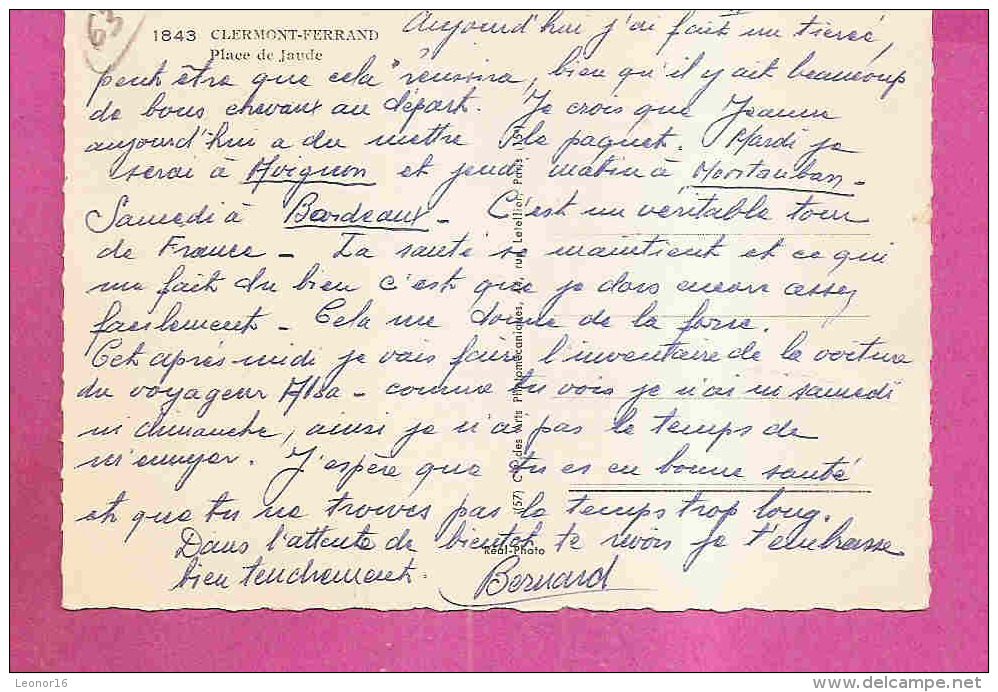 63
1843 CLERMONT-FERRAND
Place de Jaude
Aujourd'hui j'ai fait un tiercé,
peut être que cela réussira, bien qu'il y ait beaucoup
de bons chevaux au départ. Je crois que Jeanne
aujourd'hui a du mettre le paquet. Mardi je
serai à Avignon et jeudi matin à Montauban -
Samedi à Bordeaux - C'est un véritable tour
de France - La santé se maintient et ce qui
me fait du bien c'est que je dors encore assez
facilement - Cela me donne de la force.
Cet après midi je vais faire l'inventaire de la voiture
du voyageur Alsa - comme tu vois je n'ai ni samedi
ni dimanche, ainsi je n'ai pas le temps de
m'ennuyer. J'espère que tu es en bonne santé
et que tu ne trouves pas le temps trop long.
Dans l'attente de bientôt te revoir je t'embrasse
bien tendrement.
Bernard
(57) C des Arts Photomécaniques, rue Letellier, Paris
Réal-Photo
Leonor16
http://www.delcampe.net